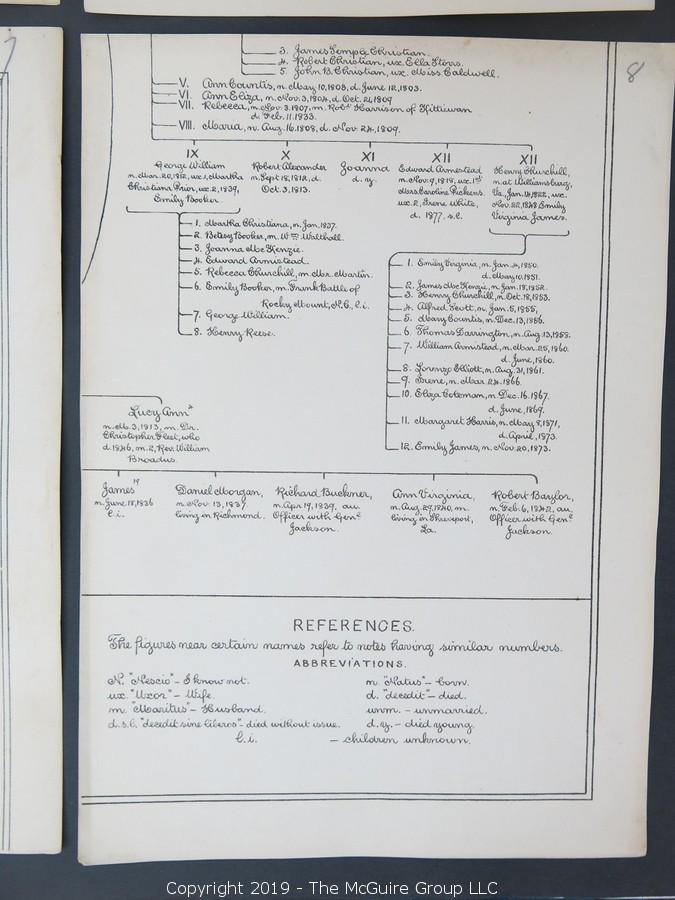 8
3. James Semple Christian.
4. Robert Christian, ux. Ella Storrs.
5. John B. Christian, ux. Miss Caldwell.
V. Ann Countis, n. May, 10, 1803, d. June, 12, 1803.
VI. Ann Eliza, n. Nov. 3, 1804, d. Oct. 21, 1809
VII. Rebecca, n. Nov. 3. 1807, m. Robt Harrison of Kittiewan
d. Feb. 11. 1833.
VIII. Maria, n. Aug. 16. 1808, d. Nov. 24, 1809.
IX
George William
n. Mar. 20, 1812, ux. 1, Martha
Christiana Prior, ux. 2, 1839,
Emily Booker.
X
Robert Alexander
n. Sept 18, 1812, d.
Oct. 3, 1813.
XI
Joanna
d. y.
XII
Edward Armestead
n. Nov. 9, 1818, ux. 1st
Mrs. Caroline Pickens
ux. 2, Irene White,
d. 1877. s. l.
XII
Henry Churchill,
n. at Williamsburg,
Va., Jan. 14, 1822, ux.
Nov. 22, 1848 Emily
Virginia James.
1. Martha Christiana, n. Jan. 1837.
2. Betsy Booker, m. Wm Walthall.
3. Joanna McKenzie.
4. Edward Armistead.
5. Rebecca Churchill, m. Mr. Martin.
6. Emily Booker, m. Frank Battle of
Rocky Mount, N.C., l. i.
7. George William.
8. Henry Reese.
1. Emily Virginia, n. Jan. 4, 1850.
d. May 10, 1851.
2. James McKenzie, n. Jan. 18, 1852.
3. Henry Churchill, n. Oct. 18, 1853.
4. Alfred Scott, n. Jan. 5, 1855,
5. Mary Countis, n. Dec. 13, 1856.
6. Thomas Darrington, n. Aug. 13, 1858.
7. William Armistead, n. Mar. 25, 1860.
d. June, 1860.
8. Lorenzo Elliott, n. Aug. 31, 1861.
9. Irene, n. Mar. 24. 1866.
10. Eliza Coleman, n. Dec. 16. 1867.
d. June, 1869.
11. Margaret Harris, n. May 8, 1871,
d. April, 1873.
12. Emily James, n. Nov. 20, 1873.
Lucy Ann
n. 3, 1813, m. Dr.
Christopher Fleet, who
d. 1846, m. 2, Rev. William
Broadus.
James 19
n. June 18, 1836
l. i.
Daniel Morgan,
n. Nov. 13, 1837.
living in Richmond.
Richard Buckner,
n. Apr. 19, 1839, an
Officer with Genl
Jackson.
Ann Virginia,
n. Aug. 29, 1840, m.
living in Shreveport,
La.
Robert Baylor,
n. Feb. 6, 1842, an
Officer with Genl
Jackson.
REFERENCES.
The figures near certain names refer to notes having similar numbers.
ABBREVIATIONS.
N. "Nescio" - I know not.
ux. "Uxor" - Wife.
m. "Maritus" - Husband.
d. s. l. "decedit sine liberos" - died without issue.
l. i. - children unknown.
n. "Natus" - born.
d. "decedit" - died.
unm. - unmarried.
d. y. - died young.
Copyright 2019 - The McGuire Group LLC